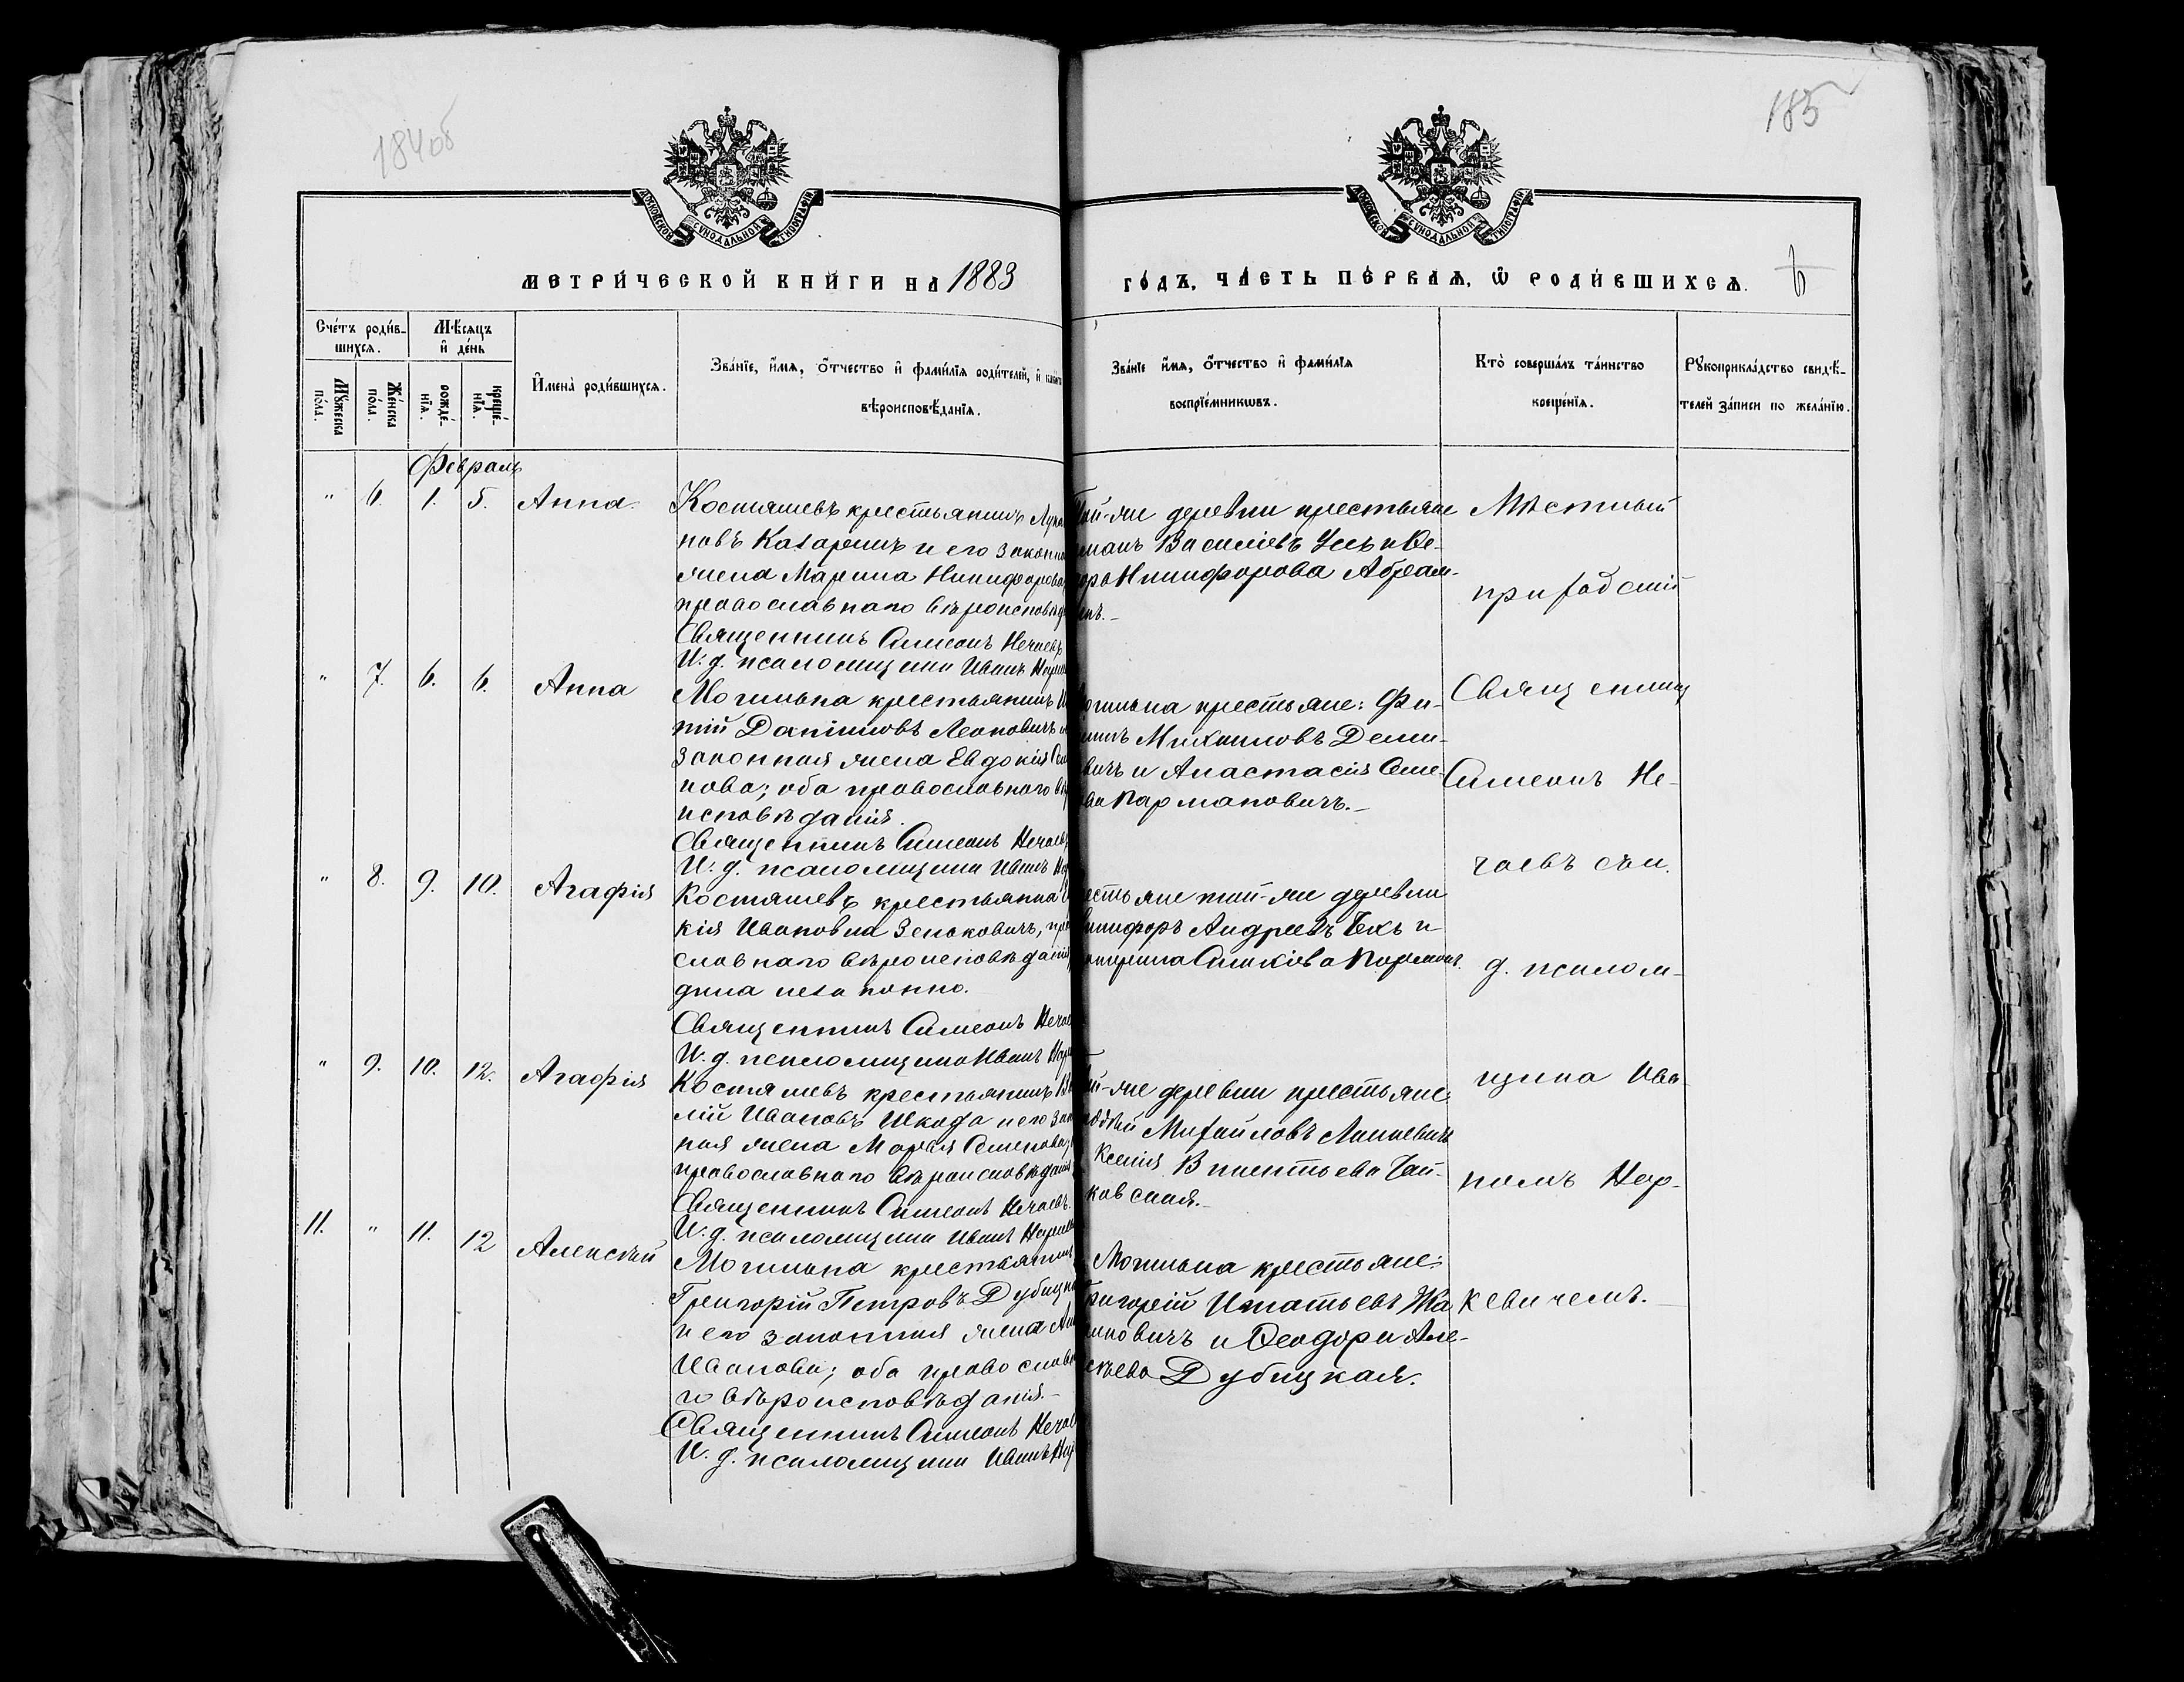 184об
185
МОСКОВСКОЙ СѴНОДАЛЬНОЙ ТИПОГРАФІИ
МОСКОВСКОЙ СѴНОДАЛЬНОЙ ТИПОГРАФІИ
МЕТРИ́ЧЕСКОЙ КНИ́ГИ НА 1883
ГО́ДЪ, ЧА́СТЬ ПЕ́РВАѦ, Ѿ РОДИ́ВШИХСѦ. 6
Сче́тъ роди́в-
шихсѧ.
Мꙋжеска
по́ла.
Же́нска
по́ла.
Мѣ́сѧцъ
и҆ де́нь
рожде́-
нїѧ.
креще́-
нїѧ.
И҆мена̀ роди́вшихсѧ.
Зва́нїе, и҆́мѧ, ѻ҆́тчество и҆ фами́лїѧ роди́телей, и҆
вѣроисповѣ́данїѧ.
Зва́нїе и҆́мѧ, ѻ҆́тчество и҆ фами́лїѧ
воспрїе́мникѡвъ.
Кто̀ соверша́лъ та́инство
креще́нїѧ.
Рꙋкоприкла́дство свидѣ́-
телей за́писи по жела́нїю.
Февраль
" 6. 1. 5. Анна.
Костяшевъ крестьянинъ Лука
новъ Казаринъ и его законна
жена Марина Никифорова,
православнаго вѣроисповѣд
Священникъ Симеонъ Нечаевъ
И. д. псаломщика Иванъ
Той-же деревни крестьяне
Василіевъ Усъ и Ѳе-
Никифорова Абрам-
Мѣстный
приходскій
" 7. 6. 6. Анна
Могильна крестьянинъ
тій Даниловъ Леоновичъ
законная жена Евдокія
нова; оба православнаго
исповѣданія.
Священникъ Симеонъ Нечаевъ
И. д. псаломщика Иванъ
Могильна крестьяне: Фи-
Михаиловъ Деми-
вичъ и Анастасія Семе-
Карманович.-
Священник
Симеонъ Не-
чаевъ съ и.
" 8. 9. 10. Агафія
Костяшевъ крестьянка
кія Иванова Зенькович,
славнаго вѣроисповѣданія
дила незаконно.
Священникъ Симеонъ
И. д. псаломщика Иванъ
крестьяне той-же деревни
Никифоръ Андреевъ и
д. псалом-
" 9. 10. 12. Агафія
Костяшевъ крестьянинъ
лій Ивановъ Шкода и его
ная жена Марія Семенова;
православнаго вѣроисповѣданія
Священникъ Симеонъ Нечаевъ.
И. д. псаломщика Иванъ
той-же деревни крестьяне:
Михаиловъ
Ксенія Викентьева Чай-
ковская.-
щика Ива-
номъ Нар-
11. " 11. 12 Алексѣй
Могильна крестьянинъ
Григорій Петровъ Дубицк
и его законная жена
Иванова; оба православ
го вѣроисповѣданія.-
Священникъ Симеонъ
И. д. псаломщика Иванъ
Могильна крестьяне:
Григорій Игнатьевъ
и Ѳеодора Але-
ксѣева Дубицкая.
кевичемъ.-